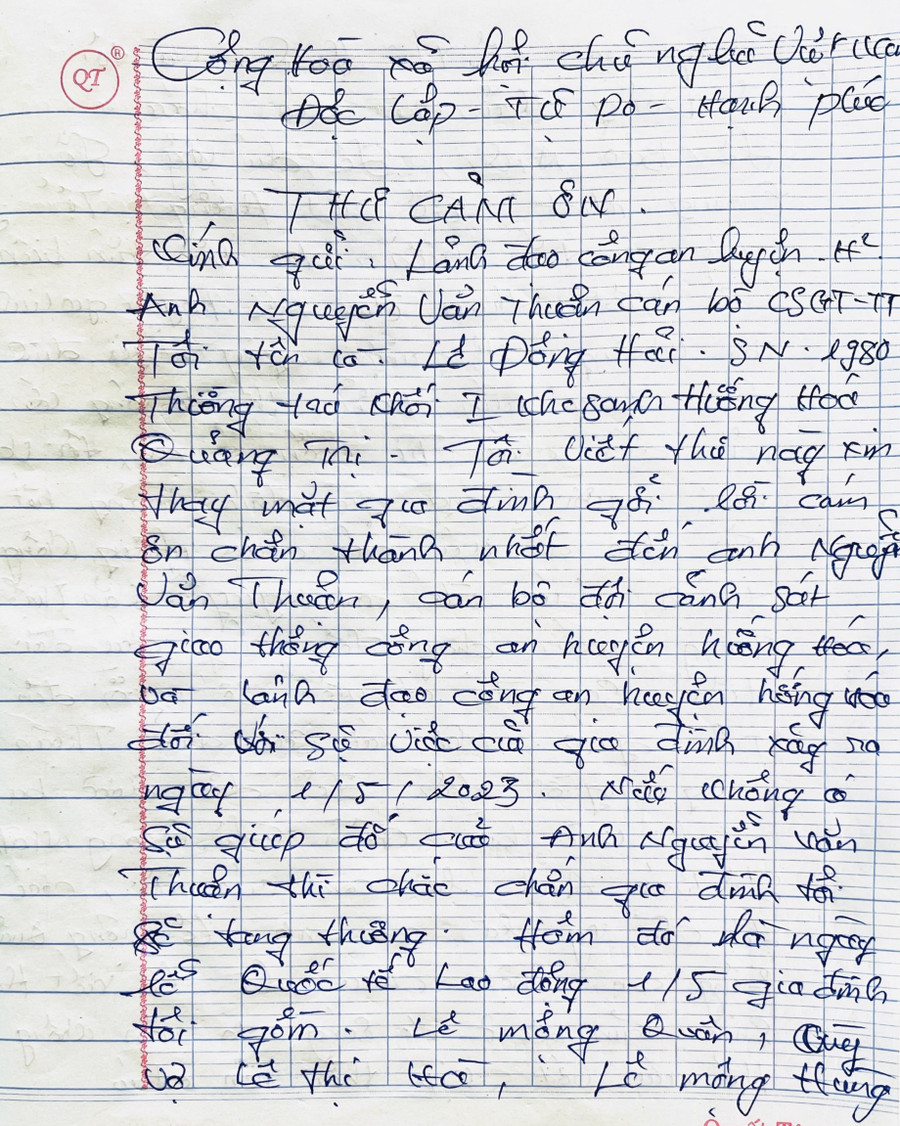 QT ®
Cộng Hoà xã hội chủ nghĩa Việt Na
Độc Lập - Tự Do - Hạnh phúc
THƯ CẢM ƠN.
Kính gửi. Lãnh đạo công an huyện. H²
Anh Nguyễn Văn Thuần cán bộ CSGT-TT
Tôi tên là. Lê Đông Hải. SN. 1980
Thường trú khối I Khe Sanh Hướng Hoá
Quảng Trị - Tôi Viết thư này xin
thay mặt gia đình gởi lời cám
ơn chân thành nhất đến anh Nguyễ
Văn Thuần, cán bộ đội cảnh sát
giao thông công an huyện hướng Hoá,
và Lãnh đạo công an huyện hướng Hoá
đối với sự việc của gia đình xảy ra
ngày 1/5/2023. Nếu không có
Sự giúp đỡ của Anh Nguyễn văn
Thuần thì chắc chắn gia đình tôi
sẽ tang thương. Hôm đó là ngày
lễ Quốc tế Lao động 1/5 gia đình
tôi gồm. Lê mộng Quân, Cùng
vợ Lê thị Hoà, Lê mộng Hùng